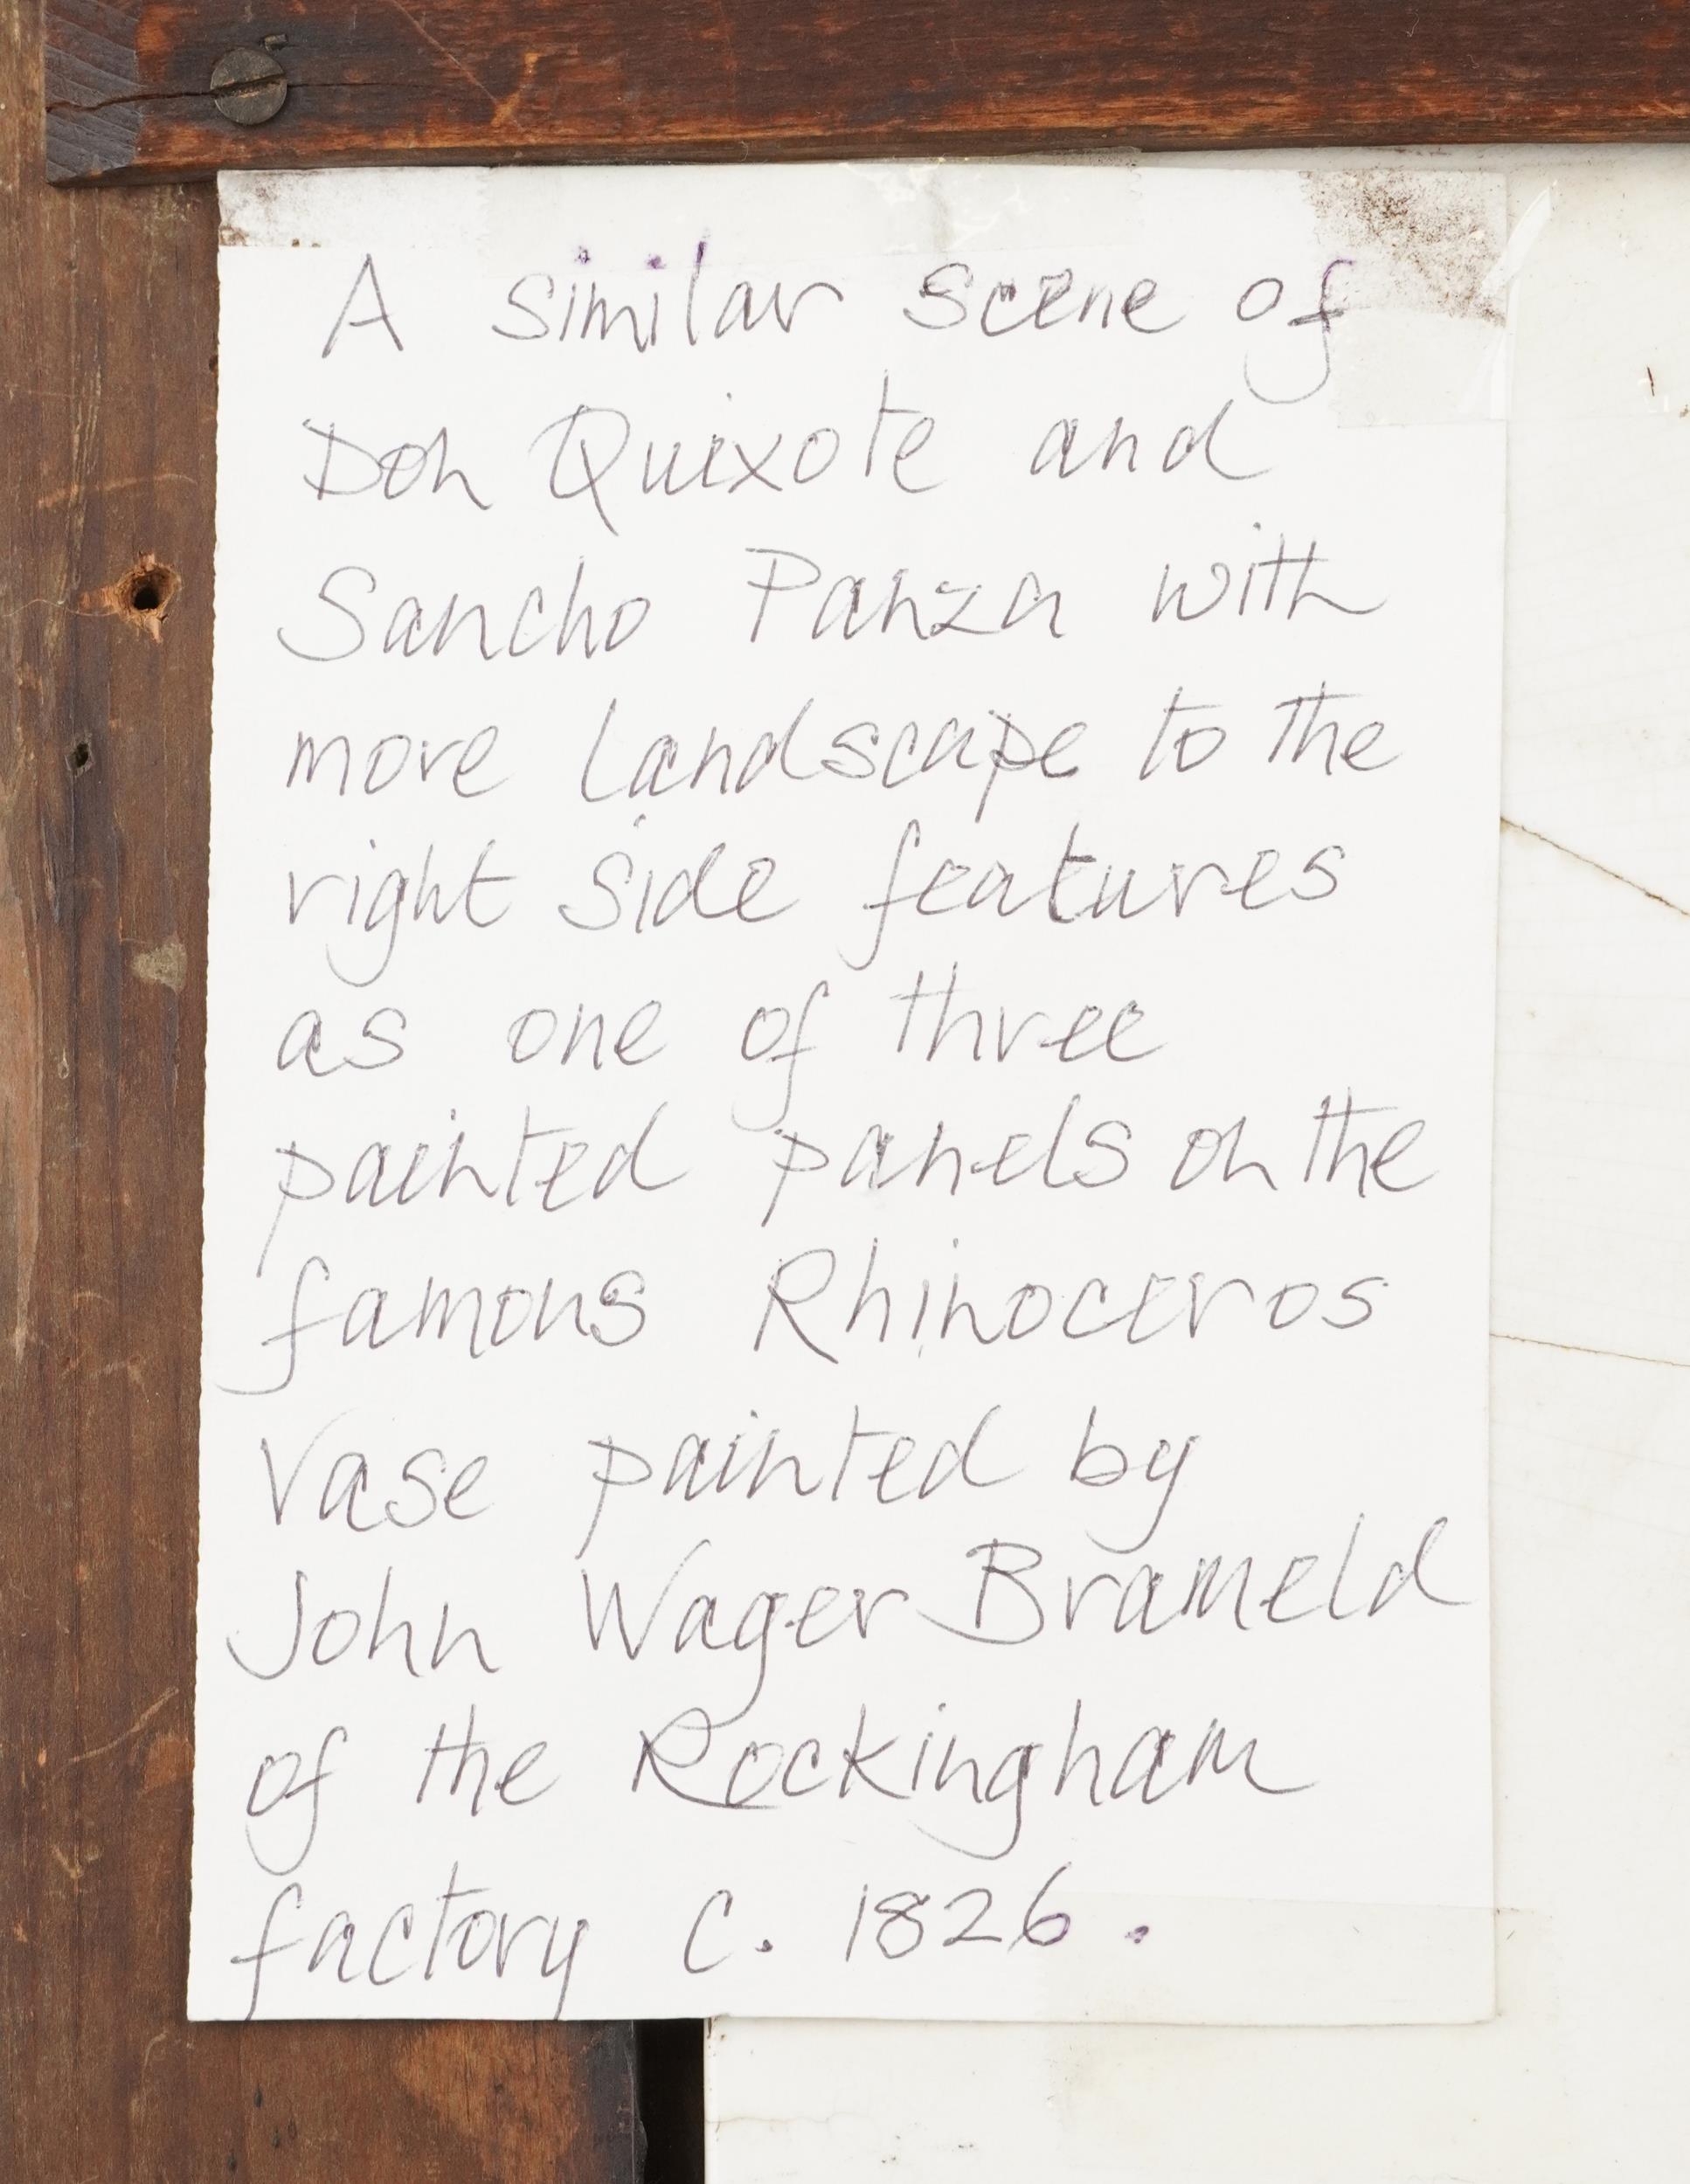 A similar scene of
Don Quixote and
Sancho Panza with
more landscape to the
right side features
as one of three
painted panels on the
famous Rhinoceros
Vase painted by
John Wager Brameld
of the Rockingham
factory c. 1826.